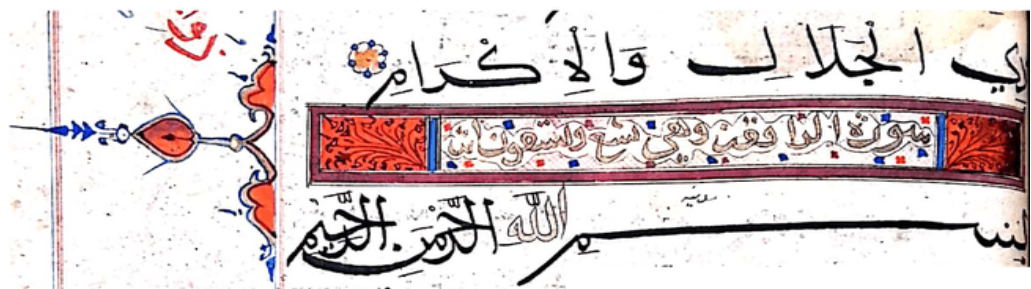 ذِي الْجَلَالِ وَالْإِكْرَامِ
سورة الواقعة وهي تسع وتسعون آية
بسم الله الرَّحْمَنِ الرَّحِيمِ